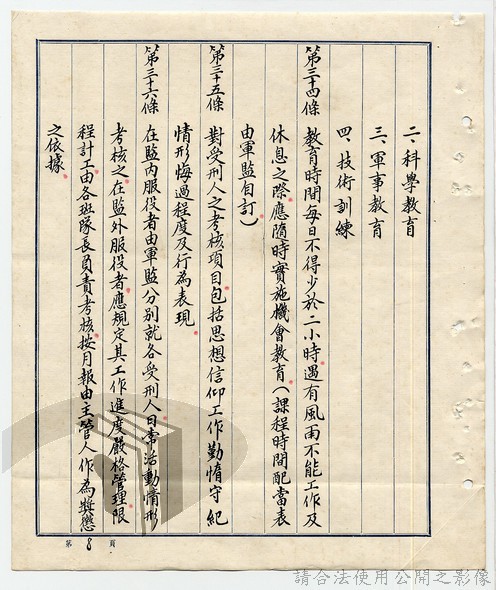 二、科學教育
三、軍事教育
四、技術訓練
第三十四條　教育時間每日不得少於二小時遇有風雨不能工作及
休息之際應隨時實施機會教育（課程時間配當表
由軍監自訂）
第三十五條　對受刑人之考核項目包括思想信仰工作勤惰守紀
情形悔過程度及行為表現
第三十六條　在監內服役者由軍監分別就各受刑人日常活動情形
考核之在監外服役者應規定其工作進度嚴格管理限
程計工由各班隊長負責考核按月報由主管人作為獎懲
之依據
第8頁
請合法使用公開之影像